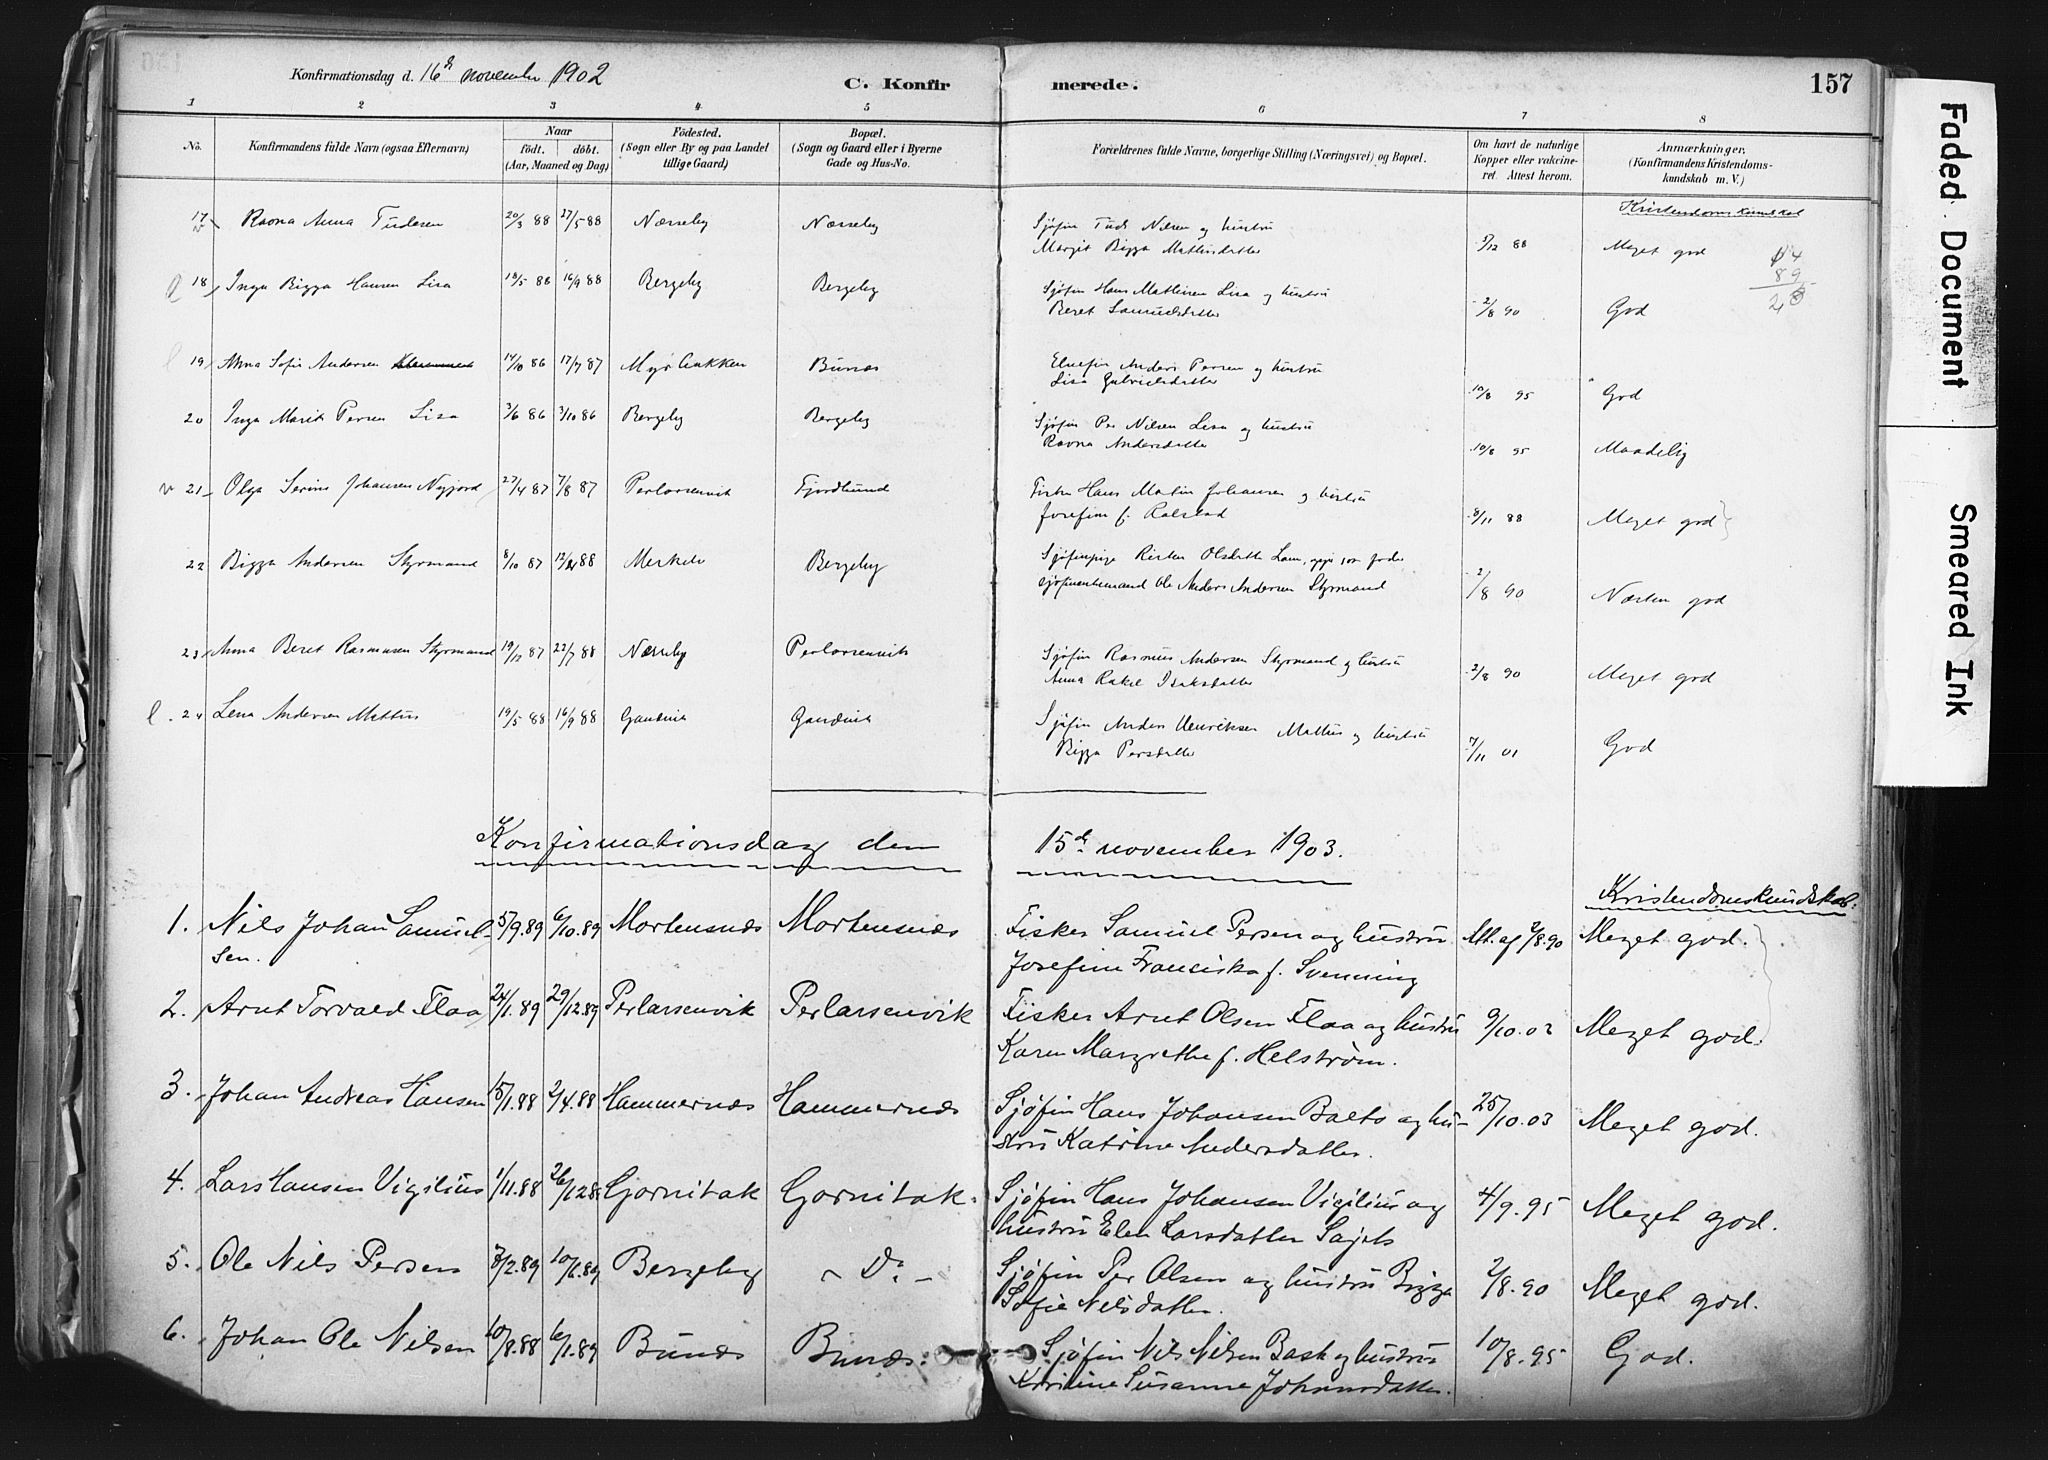 Konfirmationsdag d. 16de november 1902
C. Konfirmerede.
157
1 2 3 4 5 6 7 8
No.
Konfirmandens fulde Navn (ogsaa Efternavn)
Naar
födt. döbt.
(Aar, Maaned og Dag)
Födested.
(Sogn eller By og paa Landet tillige Gaard)
Bopæl.
(Sogn og Gaard eller i Byerne Gade og Hus-No.
Forældrenes fulde Navne, borgerlige Stilling (Næringsvei) og Bopæl.
Om havt de naturlige Kopper eller vakcineret. Attest herom.
Anmærkninger.
(Konfirmandens Kristendomskundskab m. V.)
Kristendomskundskab
17 Ravna Anna Tudesen 20/3 88 27/5 88 Næsseby Næsseby Sjøfin Tuds Nilsen og hustru 5/12 88 Meget god
Margit Bigga Mathisdatter
18 Inga Bigga Hansen Lisa 18/5 88 16/9 88 Bergeby Bergeby Sjøfin Hans Mathisen Lisa og hustru 2/8 90 God
Beret Samuelsdatter
19 Anna Sofie Andersen 14/10 86 17/7 87 Bunæs Elvefin Anders Persen og hustru 10/8 95 God
Lisa Gabrielsdatter
20 Inga Marit Persen Lisa 3/6 86 3/10 86 Bergeby Bergeby Sjøfin Per Nilsen Lisa og hustru 10/8 95 Maadelig
Ravna Andersdatter
21 Olga Serine Johansen Nyjord 27/4 87 7/8 87 Perlarsenvik Fjordbund Fisker Hans Martin Johansen og hustru 8/11 88 Meget god
Josefine f. Ralstad
22 Bigga Andersen Styrmand 8/10 87 88 Meskelv Bergeby Sjøfinpige Risten Olsdatter 2/8 90 Næsten god
Anders Andersen Styrmand
23 Anna Beret Rasmusen Styrmand 19/12 87 22/7 88 Næsseby Perlarsenvik Sjøfin Rasmus Andersen Styrmand og hustru 2/8 90 Meget god
Anna Rakel Isaksdatter
24 Lena Andersen Mathis 19/5 88 16/9 88 Gandvik Gandvik Sjøfin Anders Henriksen Mathis og hustru 7/11 01 God
Bigga Persdatter
Konfirmationsdag den 15de november 1903.
Kristendomskundskab:
1. Nils Johan Samuel- 5/9.89 6/10.89 Mortensnæs Mortensnæs Fisker Samuel Persen og hustru Att. af 2/8.90 Meget god.
sen. Josefine Franciska f. Svenning
2. Arnt Torvald Flaa 24/1.89 29/12.89 Perlarsenvik Perlarsenvik Fisker Arnt Olsen Flaa og hustru 9/10.03 Meget god.
Karen Margrethe f. Helstrøm.
3. Johan Andreas Hansen 15/1.88 2/4.88 Hammernæs Hammernæs Sjøfin Hans Johansen Balto og hu- 25/10.03 Meget god.
stru Katrine Andersdatter.
4. Lars Hansen Vigilius 1/11.88 26/12.88 Gornitak Gornitak. Sjøfin Hans Johansen Vigilius og 4/9.95 Meget god.
hustru Elen Larsdatter Sajets
5. Ole Nils Persen 3/2.89 10/6.89 Bergeby - Do - Sjøfin Per Olsen og hustru Bigga 2/8.90 Meget god.
Sofie Nilsdatter.
6. Johan Ole Nilsen 10/8.88 6/1.89 Bunæs Bunæs. Sjøfin Nils Nilsen Bask og hustru 10/8.95 God.
Kristine Susanne Johannsdatter.
Faded Document
Smeared Ink